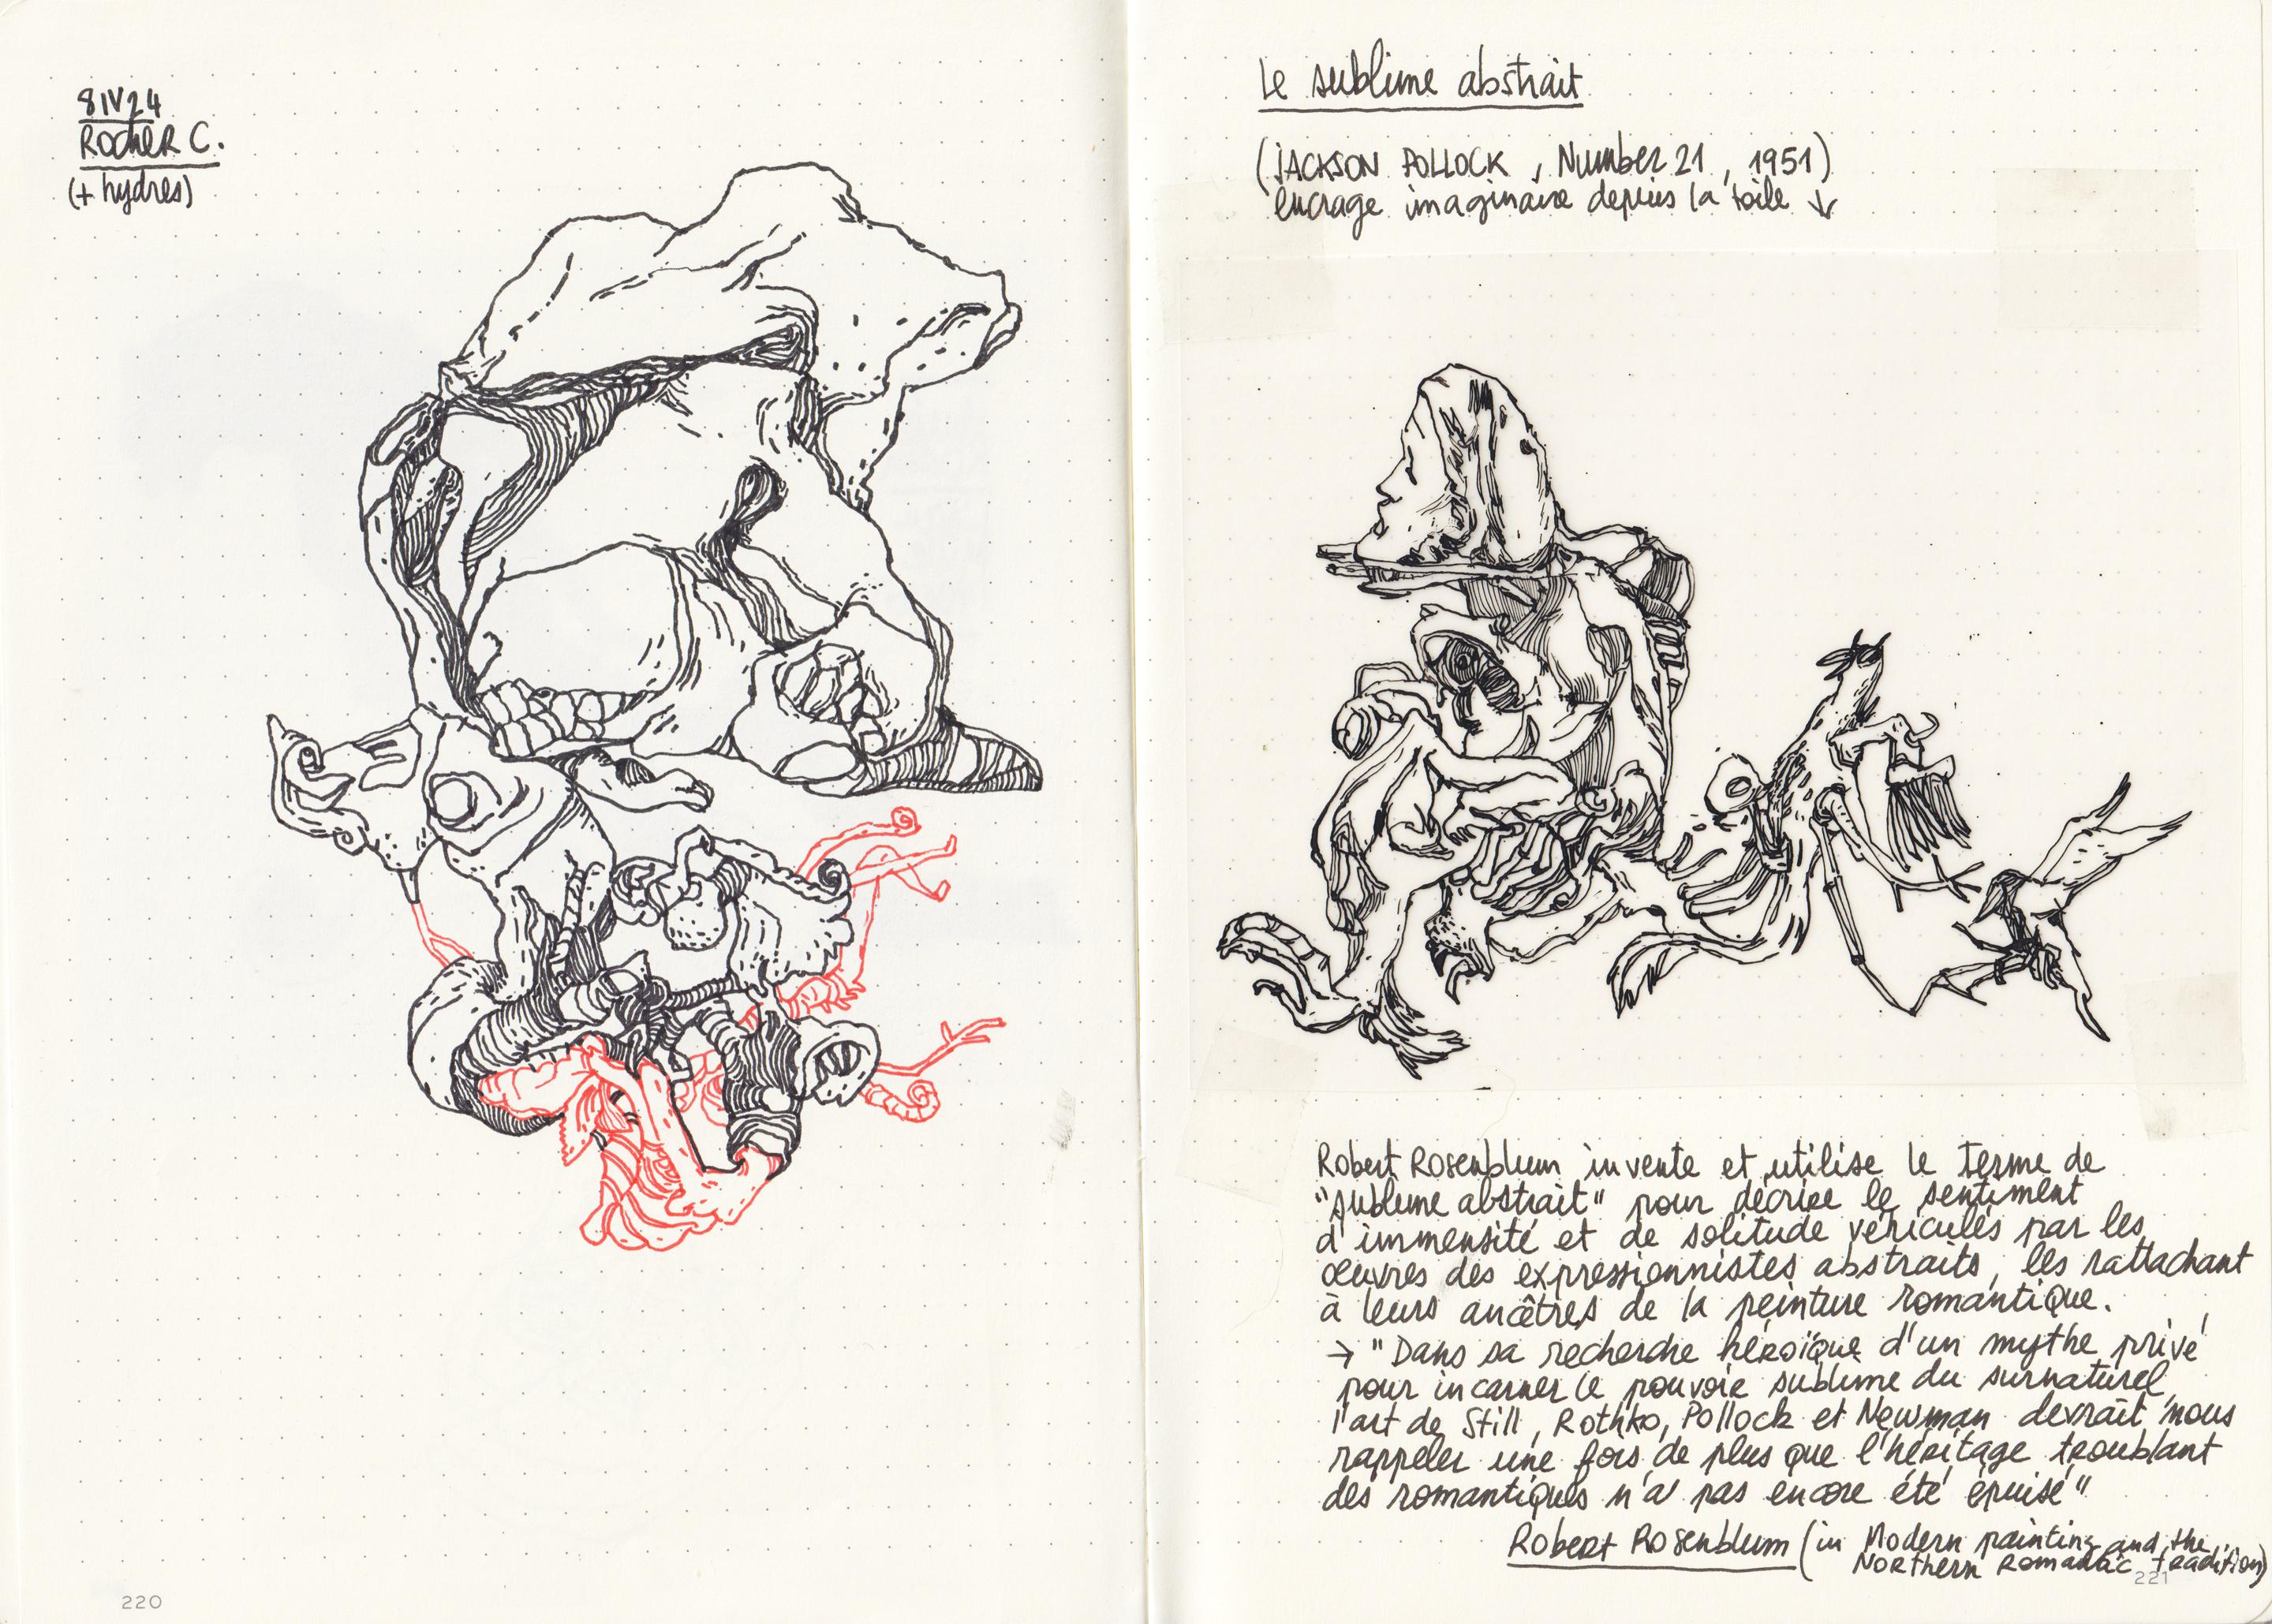 8 IV 24
ROCHER C.
(+ hydres)
220
Le sublime abstrait
(JACKSON POLLOCK, Number 21, 1951)
encrage imaginaire depuis la toile ↓
Robert Rosenblum invente et utilise le terme de
"sublime abstrait" pour décrire le sentiment
d'immensité et de solitude véhiculés par les
œuvres des expressionnistes abstraits, les rattachant
à leurs ancêtres de la peinture romantique.
→ "Dans sa recherche héroïque d'un mythe privé
pour incarner le pouvoir sublime du surnaturel,
l'art de Still, Rothko, Pollock et Newman devrait nous
rappeler une fois de plus que l'héritage troublant
des romantiques n'a pas encore été épuisé"
Robert Rosenblum (in Modern painting and the
Northern Romantic tradition)
221